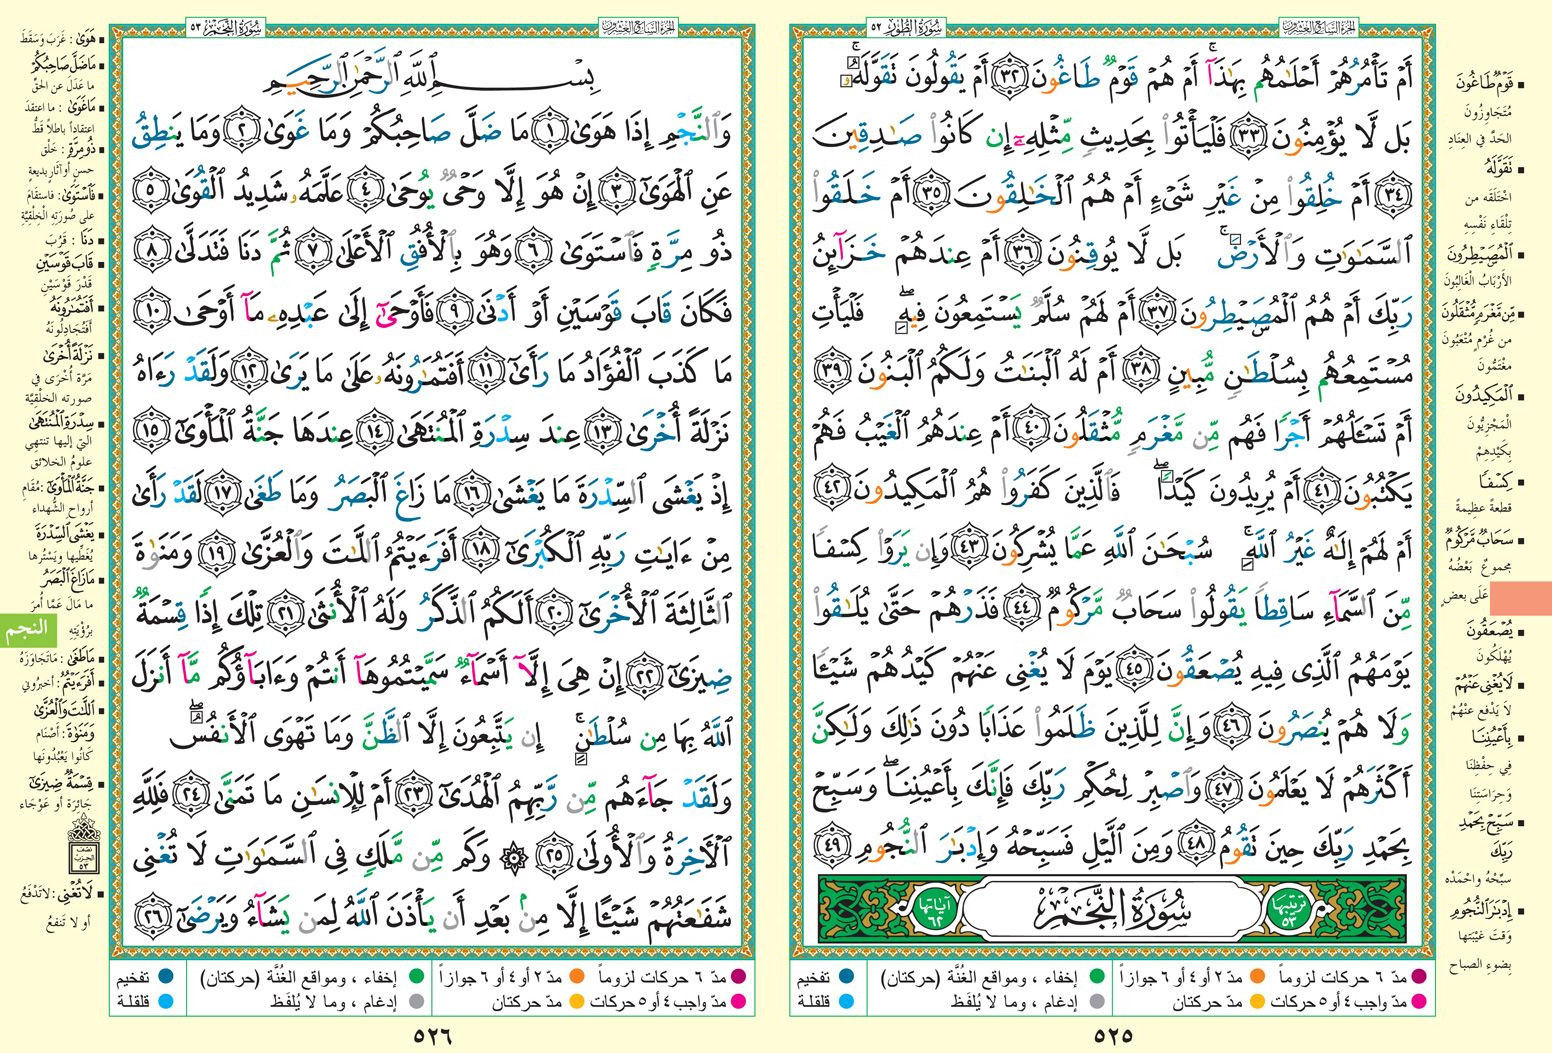 الجزء السابع والعشرون
سورة الطور ٥٢
أَمْ تَأْمُرُهُمْ أَحْلَٰمُهُم بِهَٰذَآ ۚ أَمْ هُمْ قَوْمٌ طَاغُونَ ٣٢ أَمْ يَقُولُونَ تَقَوَّلَهُۥ ۚ
بَل لَّا يُؤْمِنُونَ ٣٣ فَلْيَأْتُوا۟ بِحَدِيثٍ مِّثْلِهِۦٓ إِن كَانُوا۟ صَٰدِقِينَ
٣٤ أَمْ خُلِقُوا۟ مِنْ غَيْرِ شَىْءٍ أَمْ هُمُ ٱلْخَٰلِقُونَ ٣٥ أَمْ خَلَقُوا۟
ٱلسَّمَٰوَٰتِ وَٱلْأَرْضَ ۚ بَل لَّا يُوقِنُونَ ٣٦ أَمْ عِندَهُمْ خَزَآئِنُ
رَبِّكَ أَمْ هُمُ ٱلْمُصَۣيْطِرُونَ ٣٧ أَمْ لَهُمْ سُلَّمٌ يَسْتَمِعُونَ فِيهِ ۖ فَلْيَأْتِ
مُسْتَمِعُهُم بِسُلْطَٰنٍ مُّبِينٍ ٣٨ أَمْ لَهُ ٱلْبَنَٰتُ وَلَكُمُ ٱلْبَنُونَ ٣٩
أَمْ تَسْـَٔلُهُمْ أَجْرًا فَهُم مِّن مَّغْرَمٍ مُّثْقَلُونَ ٤٠ أَمْ عِندَهُمُ ٱلْغَيْبُ فَهُمْ
يَكْتُبُونَ ٤١ أَمْ يُرِيدُونَ كَيْدًا ۖ فَٱلَّذِينَ كَفَرُوا۟ هُمُ ٱلْمَكِيدُونَ ٤٢
أَمْ لَهُمْ إِلَٰهٌ غَيْرُ ٱللَّهِ ۚ سُبْحَٰنَ ٱللَّهِ عَمَّا يُشْرِكُونَ ٤٣ وَإِن يَرَوْا۟ كِسْفًا
مِّنَ ٱلسَّمَآءِ سَاقِطًا يَقُولُوا۟ سَحَابٌ مَّرْكُومٌ ٤٤ فَذَرْهُمْ حَتَّىٰ يُلَٰقُوا۟
يَوْمَهُمُ ٱلَّذِى فِيهِ يُصْعَقُونَ ٤٥ يَوْمَ لَا يُغْنِى عَنْهُمْ كَيْدُهُمْ شَيْـًٔا
وَلَا هُمْ يُنصَرُونَ ٤٦ وَإِنَّ لِلَّذِينَ ظَلَمُوا۟ عَذَابًا دُونَ ذَٰلِكَ وَلَٰكِنَّ
أَكْثَرَهُمْ لَا يَعْلَمُونَ ٤٧ وَٱصْبِرْ لِحُكْمِ رَبِّكَ فَإِنَّكَ بِأَعْيُنِنَا ۖ وَسَبِّحْ
بِحَمْدِ رَبِّكَ حِينَ تَقُومُ ٤٨ وَمِنَ ٱلَّيْلِ فَسَبِّحْهُ وَإِدْبَٰرَ ٱلنُّجُومِ ٤٩
ترتيبها ٥٣ سُورَةُ النَّجْمِ آياتها ٦٢
قَوْمٌ طَاغُونَ
مُتَجَاوِزُونَ
الحَدَّ فِي العِنَادِ
تَقَوَّلَهُ
اخْتَلَقَه من
تِلْقَاءِ نَفْسِهِ
الْمُصَيْطِرُونَ
الأَرْبَابُ الغَالِبُونَ
مِّن مَّغْرَمٍ مُّثْقَلُونَ
من غُرْمٍ مُتْعَبُونَ
مغْتَمُّونَ
الْمَكِيدُونَ
الْمَجْزِيُّونَ
بِكَيْدِهِمْ
كِسْفًا
قطعةً عظِيمةً
سَحَابٌ مَّرْكُومٌ
مجموعٌ بَعْضُهُ
عَلَى بعضٍ
يُصْعَقُونَ
يُهْلَكُونَ
لَا يُغْنِي عَنْهُمْ
لا يَدْفع عنْهُمْ
بِأَعْيُنِنَا
فِي حِفْظِنَا
وَحِرَاسَتِنَا
سَبِّحْ بِحَمْدِ
رَبِّكَ
سبِّحْهُ واحْمَدْه
إِدْبَارَ النُّجُومِ
وَقتَ غَيْبَتها
بِضوءِ الصباح
مدّ ٦ حركات لزوماً مدّ ٢ أو ٤ أو ٦ جوازاً إخفاء ، ومواقع الغُنَّة (حركتان) تفخيم
مدّ واجب ٤ أو ٥ حركات مدّ حركتان إدغام ، وما لا يُلفَظ قلقلة
٥٢٥
الجزء السابع والعشرون
سورة النجم ٥٣
بِسْمِ ٱللَّهِ ٱلرَّحْمَٰنِ ٱلرَّحِيمِ
وَٱلنَّجْمِ إِذَا هَوَىٰ ١ مَا ضَلَّ صَاحِبُكُمْ وَمَا غَوَىٰ ٢ وَمَا يَنطِقُ
عَنِ ٱلْهَوَىٰٓ ٣ إِنْ هُوَ إِلَّا وَحْىٌ يُوحَىٰ ٤ عَلَّمَهُۥ شَدِيدُ ٱلْقُوَىٰ ٥
ذُو مِرَّةٍ فَٱسْتَوَىٰ ٦ وَهُوَ بِٱلْأُفُقِ ٱلْأَعْلَىٰ ٧ ثُمَّ دَنَا فَتَدَلَّىٰ ٨
فَكَانَ قَابَ قَوْسَيْنِ أَوْ أَدْنَىٰ ٩ فَأَوْحَىٰٓ إِلَىٰ عَبْدِهِۦ مَآ أَوْحَىٰ ١٠
مَا كَذَبَ ٱلْفُؤَادُ مَا رَأَىٰٓ ١١ أَفَتُمَٰرُونَهُۥ عَلَىٰ مَا يَرَىٰ ١٢ وَلَقَدْ رَءَاهُ
نَزْلَةً أُخْرَىٰ ١٣ عِندَ سِدْرَةِ ٱلْمُنتَهَىٰ ١٤ عِندَهَا جَنَّةُ ٱلْمَأْوَىٰٓ ١٥
إِذْ يَغْشَى ٱلسِّدْرَةَ مَا يَغْشَىٰ ١٦ مَا زَاغَ ٱلْبَصَرُ وَمَا طَغَىٰ ١٧ لَقَدْ رَأَىٰ
مِنْ ءَايَٰتِ رَبِّهِ ٱلْكُبْرَىٰٓ ١٨ أَفَرَءَيْتُمُ ٱللَّٰتَ وَٱلْعُزَّىٰ ١٩ وَمَنَوٰةَ
ٱلثَّالِثَةَ ٱلْأُخْرَىٰٓ ٢٠ أَلَكُمُ ٱلذَّكَرُ وَلَهُ ٱلْأُنثَىٰ ٢١ تِلْكَ إِذًا قِسْمَةٌ
ضِيزَىٰٓ ٢٢ إِنْ هِىَ إِلَّآ أَسْمَآءٌ سَمَّيْتُمُوهَآ أَنتُمْ وَءَابَآؤُكُم مَّآ أَنزَلَ
ٱللَّهُ بِهَا مِن سُلْطَٰنٍ ۚ إِن يَتَّبِعُونَ إِلَّا ٱلظَّنَّ وَمَا تَهْوَى ٱلْأَنفُسُ ۖ
وَلَقَدْ جَآءَهُم مِّن رَّبِّهِمُ ٱلْهُدَىٰٓ ٢٣ أَمْ لِلْإِنسَٰنِ مَا تَمَنَّىٰ ٢٤ فَلِلَّهِ
ٱلْءَاخِرَةُ وَٱلْأُولَىٰ ٢٥ ۞ وَكَم مِّن مَّلَكٍ فِى ٱلسَّمَٰوَٰتِ لَا تُغْنِى
شَفَٰعَتُهُمْ شَيْـًٔا إِلَّا مِنۢ بَعْدِ أَن يَأْذَنَ ٱللَّهُ لِمَن يَشَآءُ وَيَرْضَىٰٓ ٢٦
هَوَىٰ : غَرَبَ وَسَقَطَ
مَا ضَلَّ صَاحِبُكُمْ
ما عَدَلَ عن الحقِّ
مَا غَوَىٰ : ما اعتقدَ
اعتقاداً باطلاً قطُّ
ذُو مِرَّةٍ : خَلْق
حسنٍ أو آثارٍ بديعةٍ
فَاسْتَوَىٰ : فاستقامَ
على صُورَتِه الخِلْقِيَّةِ
دَنَا : قَرُبَ
قَابَ قَوْسَيْنِ
قَدْرَ قَوْسَيْنِ
أَفَتُمَارُونَهُ
أَفَتُجَادِلُونَهُ
نَزْلَةً أُخْرَىٰ
مَرَّةً أُخْرَى فِي
صورتِه الخلْقيَّة
سِدْرَةِ الْمُنْتَهَىٰ
التي إليها تنتهِي
علومُ الخلائق
جَنَّةُ الْمَأْوَىٰ : مُقَام
أرواح الشُّهداء
يَغْشَى السِّدْرَةَ
يُغَطِّيها ويَسْتُرها
مَا زَاغَ الْبَصَرُ
ما مَالَ عَمَّا أُمِرَ
بِرُؤْيَتِهِ
النجم
مَا طَغَىٰ : مَا تَجَاوَزَهُ
أَفَرَءَيْتُمُ : أخبرُوني
اللَّاتَ وَالْعُزَّىٰ
وَمَنَوٰةَ : أصْنَام
كَانُوا يَعْبُدُونَها
قِسْمَةٌ ضِيزَىٰ
جَائِرَة أو عَوْجَاء
نصف
الحزب
٥٣
لَا تُغْنِي : لا تَدْفَعُ
أو لا تَنفعُ
مدّ ٦ حركات لزوماً مدّ ٢ أو ٤ أو ٦ جوازاً إخفاء ، ومواقع الغُنَّة (حركتان) تفخيم
مدّ واجب ٤ أو ٥ حركات مدّ حركتان إدغام ، وما لا يُلفَظ قلقلة
٥٢٦